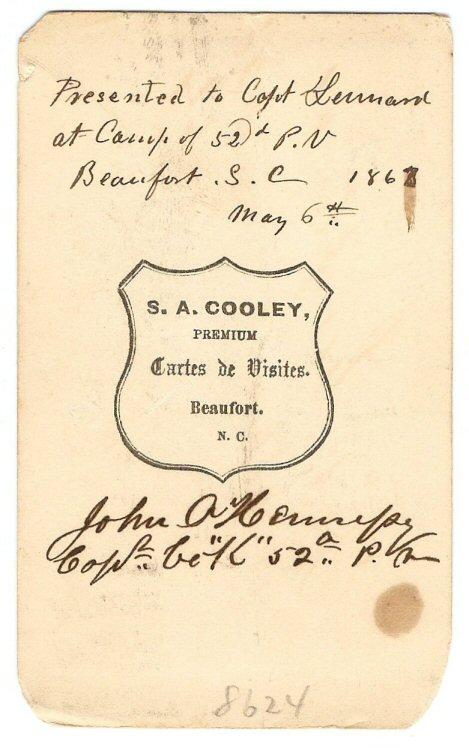 Presented to Capt Lennard
at Camp of 52d P.V
Beaufort . S. C 186
May 6th
S. A. COOLEY,
PREMIUM
Cartes de Visites.
Beaufort.
N. C.
John
Capt Co "K" 52d P.V
8624